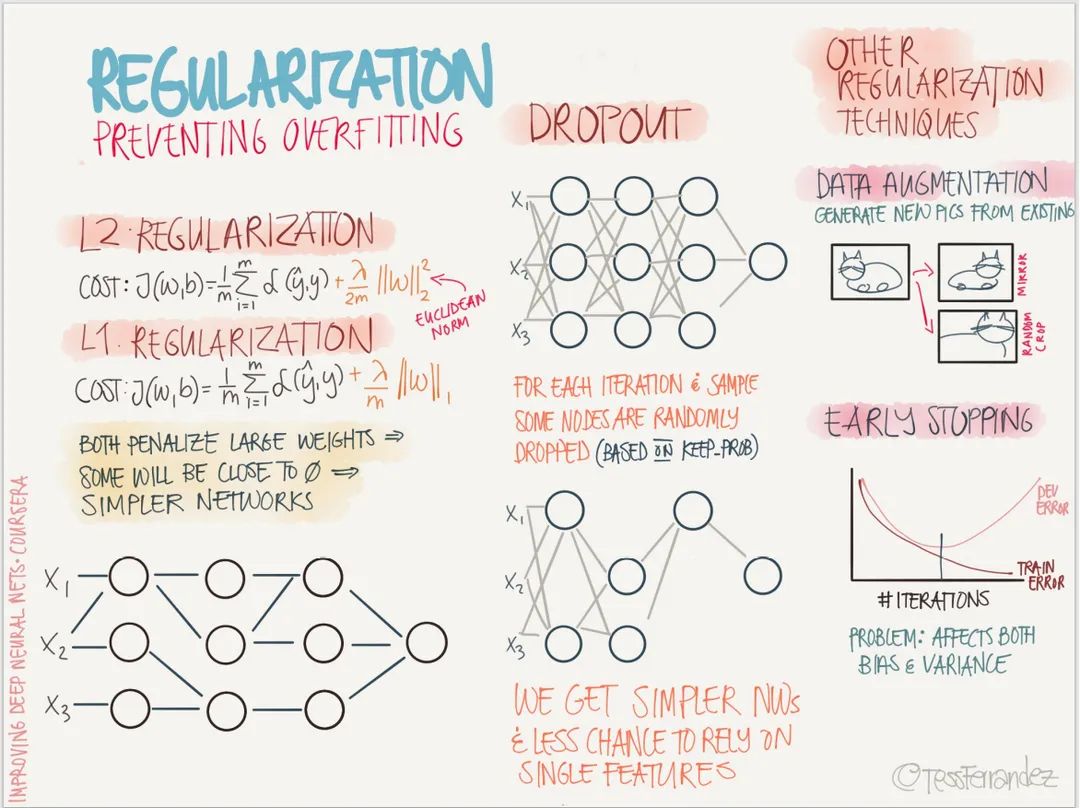 REGULARIZATION
PREVENTING OVERFITTING
L2 · REGULARIZATION
COST: J(w,b) = 1/m Σ_{i=1}^{m} L(ŷ,y) + λ/2m ||w||₂²
EUCLIDEAN
NORM
L1 · REGULARIZATION
COST: J(w,b) = 1/m Σ_{i=1}^{m} L(ŷ,y) + λ/m ||w||₁
BOTH PENALIZE LARGE WEIGHTS ⇒
SOME WILL BE CLOSE TO Ø ⇒
SIMPLER NETWORKS
X₁
X₂
X₃
IMPROVING DEEP NEURAL NETS · COURSERA
DROPOUT
X₁
X₂
X₃
FOR EACH ITERATION & SAMPLE
SOME NODES ARE RANDOMLY
DROPPED (BASED ON KEEP_PROB)
X₁
X₂
X₃
WE GET SIMPLER NWs
& LESS CHANCE TO RELY ON
SINGLE FEATURES
OTHER
REGULARIZATION
TECHNIQUES
DATA AUGMENTATION
GENERATE NEW PICS FROM EXISTING
MIRROR
RANDOM
CROP
EARLY STOPPING
DEV
ERROR
TRAIN
ERROR
# ITERATIONS
PROBLEM: AFFECTS BOTH
BIAS & VARIANCE
©TessFerrandez